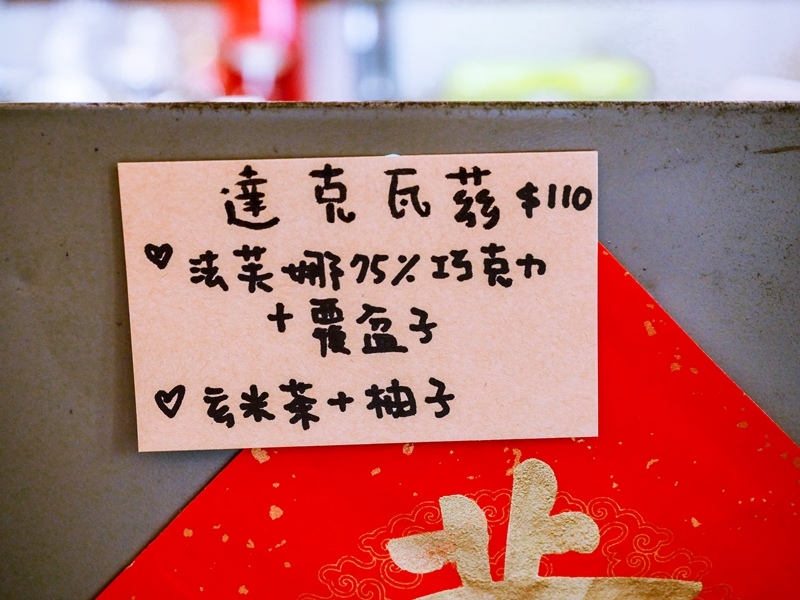 達克瓦茲 $110
♡ 法芙娜75%巧克力
+覆盆子
♡ 玄米茶+柚子